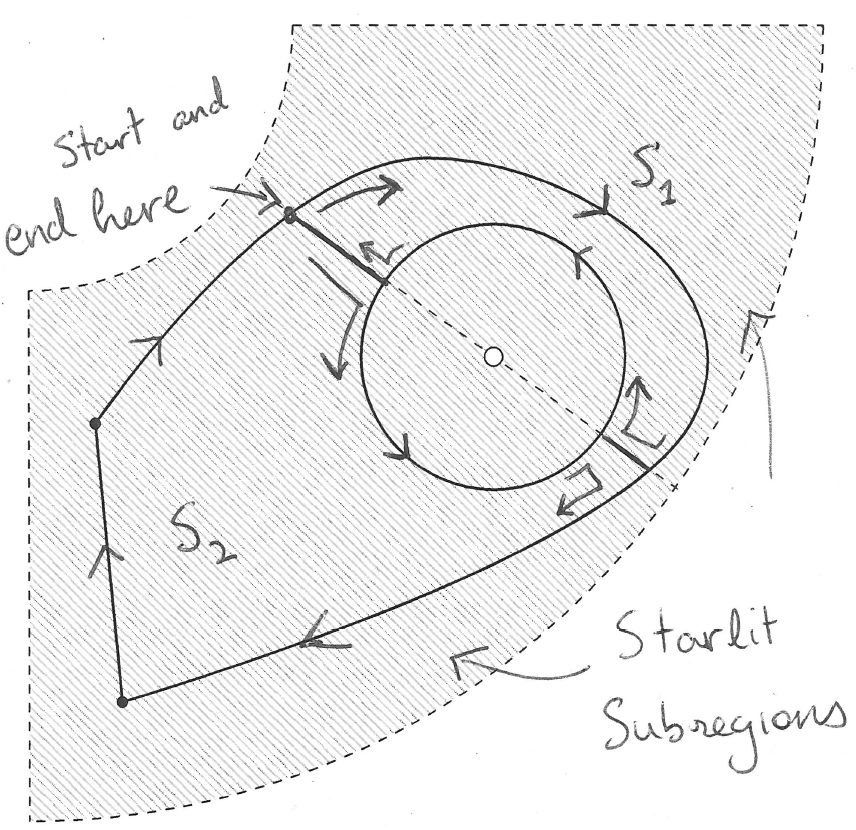 Start and
end here
S1
S2
Starlit
Subregions